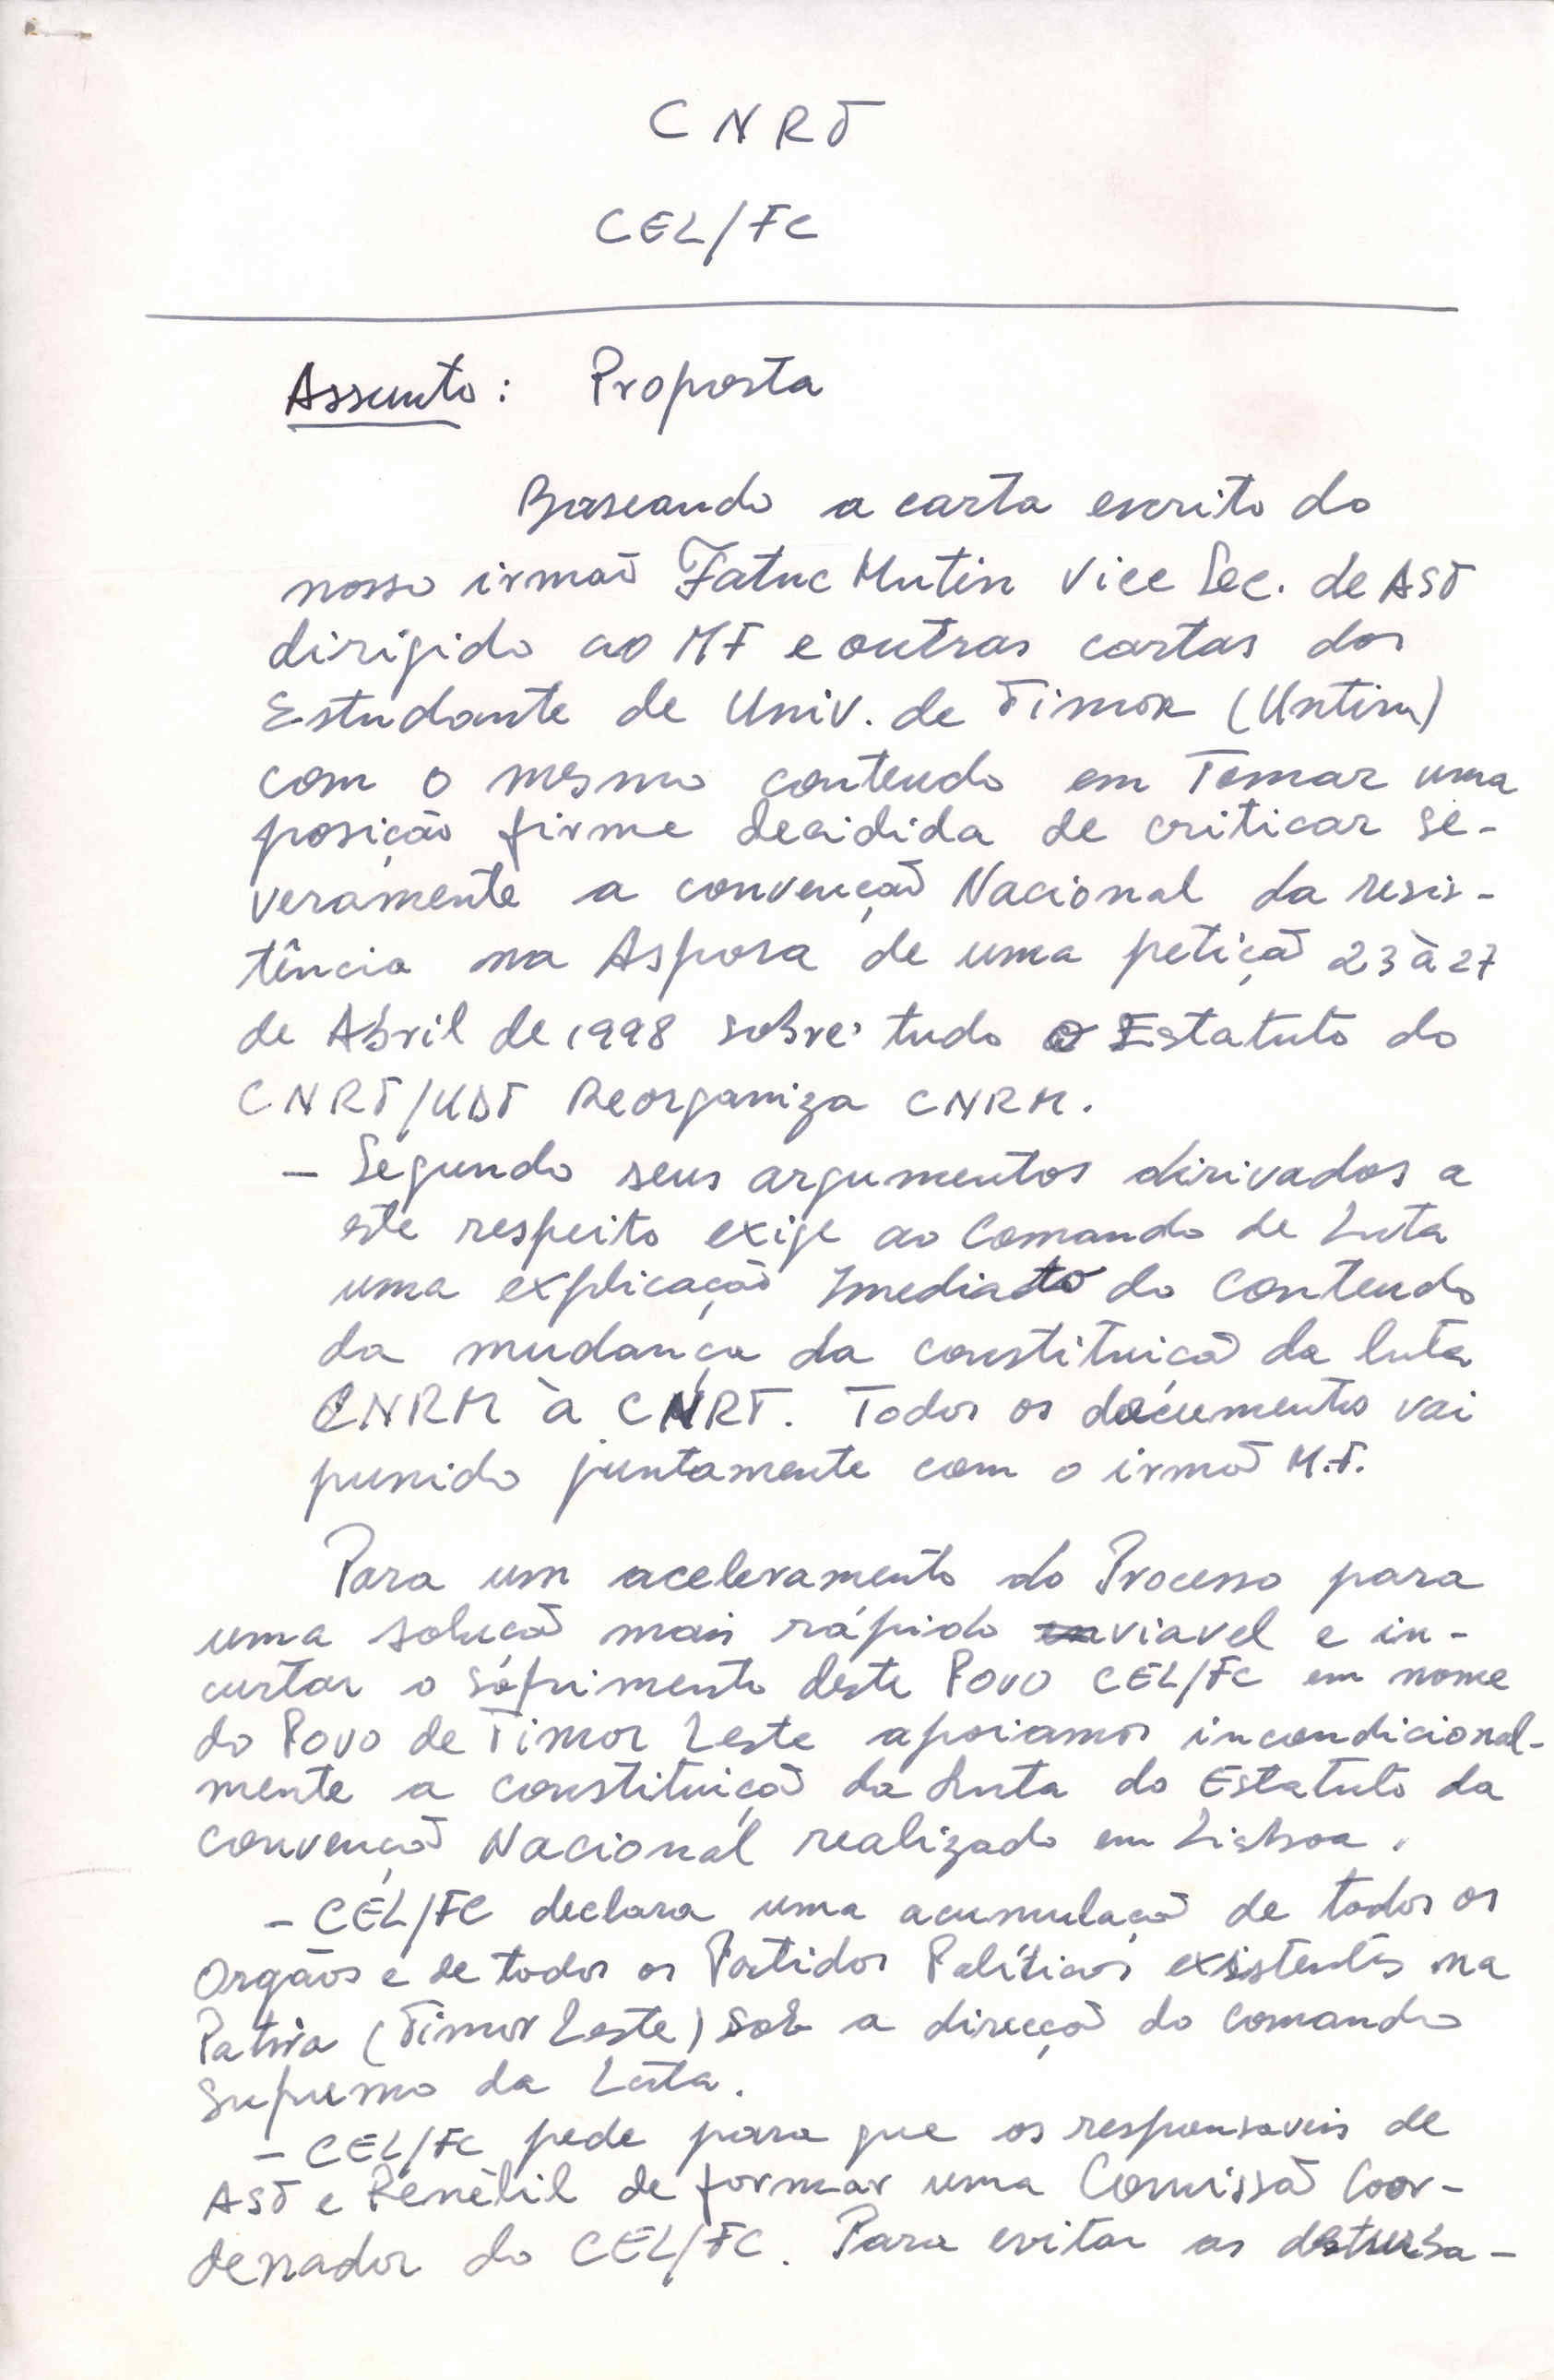 CNRT
CEL/FC
Assunto: Proposta
Baseando a carta escrito do
nosso irmão Fatuc Mutin Vice Sec. de AST
dirigido ao MF e outras cartas dos
Estudante de Univ. de Timor (Untim)
com o mesmo conteudo em Tomar uma
posição firme decidida de criticar se-
veramente a convenção Nacional da resis-
tência na Aspora de uma petiçã 23 à 27
de Abril de 1998 sobre tudo o Estatuto do
CNRT/UDT Reorganiza CNRM.
- Segundo seus argumentos dirivados a
este respeito exige ao Comando de Luta
uma explicação Imediato do Conteudo
da mudança da constituiçã da luta
CNRM à CNRT. Todos os documentos vai
punido juntamente com o irmã M.F.
Para um aceleramento do Processo para
uma soluçã mais rápido viavel e in-
curtar o sofrimento deste Povo CEL/FC em nome
do Povo de Timor Leste apoiamos incondicional-
mente a constituiçã da Luta do Estatuto da
convençã Nacional realizado em Lisboa.
- CEL/FC declara uma acumulaçã de todos os
Orgãos e de todos os Partidos Políticos existentes na
Patria (Timor Leste) sob a direcçã do comando
Supremo da Luta.
- CEL/FC pede para que os responsaveis de
AST e Renétil de formar uma Comissã Coor-
denador do CEL/FC. Para evitar as